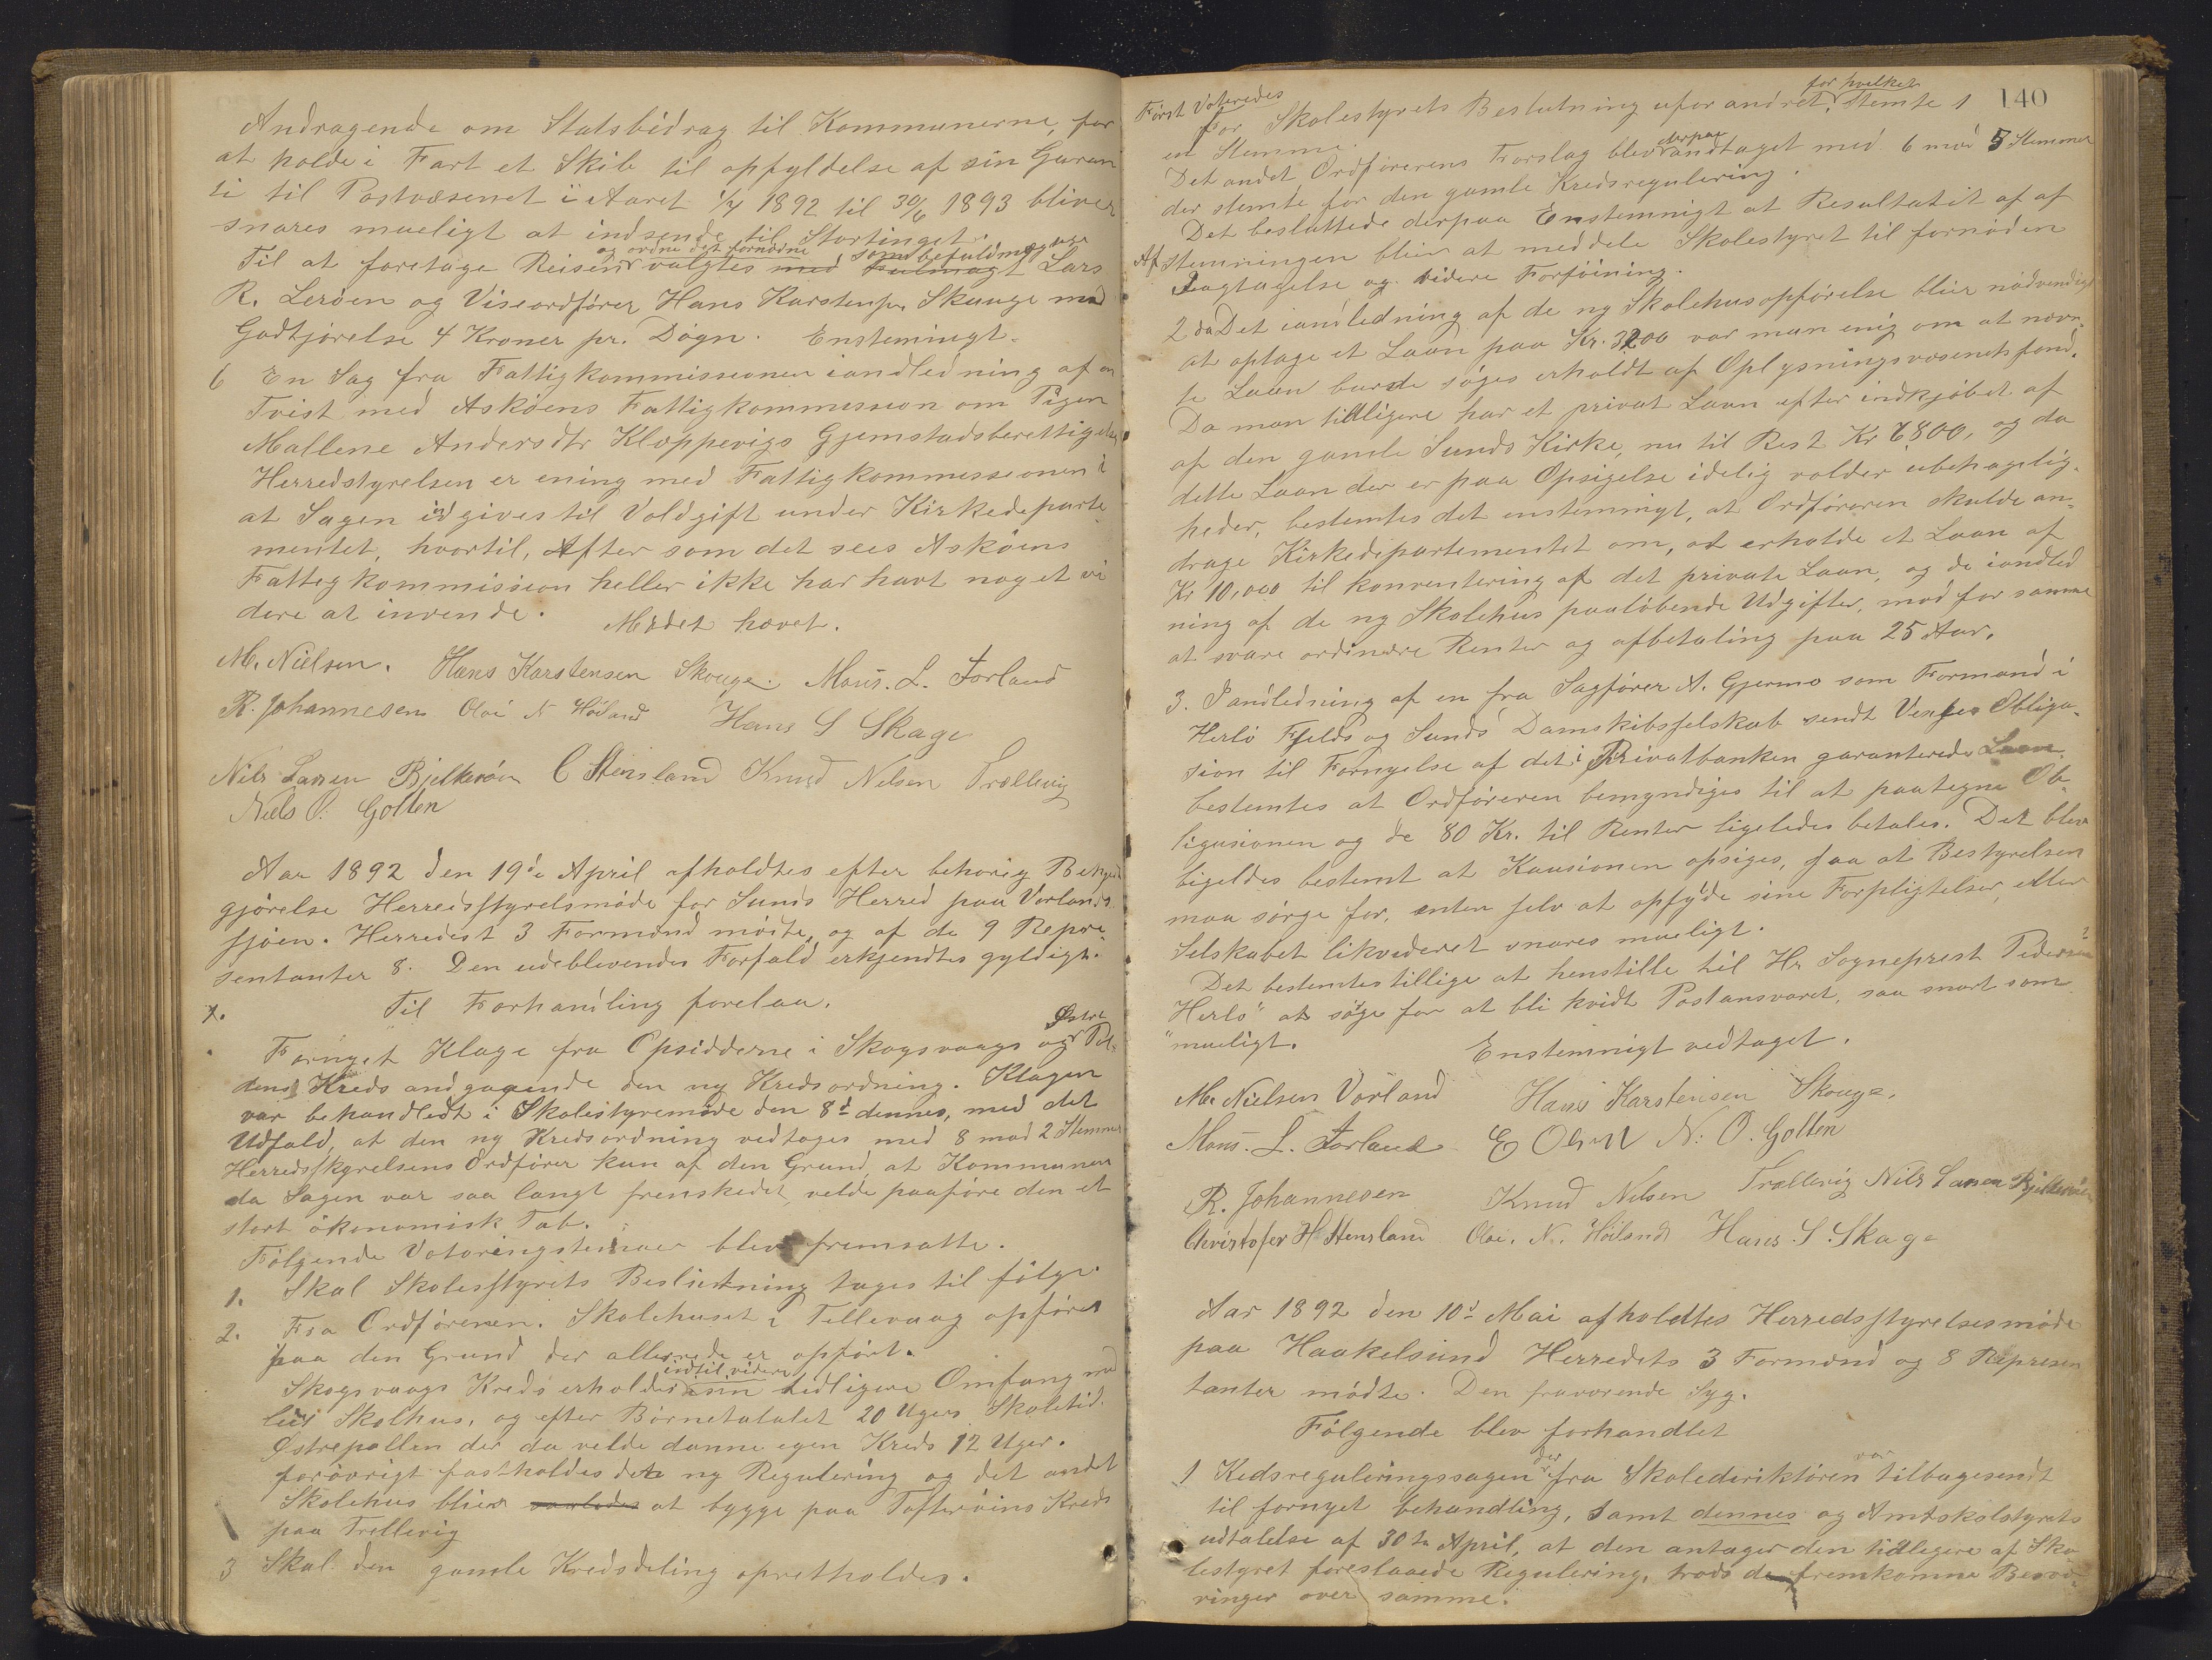 Andragende om Statsbidrag til Kommunerne, for
at holde i Fart et Skib til opfyldelse af sin Garan
ti til Postvæsenet i Aaret 1/7 1892 til 30/6 1893 bliver
snares mueligt at indsende til Stortinget.
og ordne det fornødne som befuldmægtige
Til at foretage Reisen valgtes med Fulmagt Lars
R. Lerøen og Viseordfører Hans Karstensen Skauge mod
Godtjørelse 4 Kroner pr. Døgn. Enstemingt.
6 En Sag fra Fattigkommissionen iandledning af en
Tvist med Askøens Fattigkommission om Pigen
Mallene Andersdtr Kloppevigs Gjemstadsberettigelse
Herredstyrelsen er ening med Fattigkommissionen i
at Sagen indgives til Voldgift under Kirkedeparte
mentet, hvortil, Efter som det sees Askøens
Fattigkommission heller ikke har havt noget vi
dere at invende. Mødet hævet.
M. Nielsen. Hans Karstensen Skouge. Mons. L. Forland
R. Johannesen Oloi N Høiland Hans S Skage
Nils Larsen Bjelkerøen C Stensland Knud Nelsen Trællevig
Niels O. Golten
Aar 1892 den 19de April afholdtes efter behørig Bekjend
gjørelse Herredsstyrelsmøde for Sunds Herred paa Vorlands
sjøen. Herredest 3 Formænd mødte, og af de 9 Repre
sentanter 8. Den udeblevendes Forfald erkjendtes gyldigt.
1. Til Forhandling forelaa.
Østre
Fornyet Klage fra Opsidderne i Skogsvaags og Pol
lens Kreds andgaaende den ny Kredsordning. Klagen
var behandledt i Skolestyremøde den 8d dennes, med det
Udfald, at den ny Kredsordning vedtoges med 8 mod 2 Stemmer
Herredsstyrelsens Ordfører kun af den Grund, at Kommunen
da Sagen var saa langt fremskedet, velde paaføre den et
stort økonomisk Tab.
Følgende Votoringstemaer blev fremsatte.
1. Skal Skolesstyrets Beslutning tages til følge.
2. Fra Ordføreren. Skolehuset i Tellevaag opføres
paa den Grund der allerede er opført.
indtil videre
Skogsvaags Kreds erholder sin tidligere Omfang med
leiet Skolhus, og efter Børnetalalet 20 Ugers Skoletid.
Østrepollen der da velde danne egen Kreds 12 Uger.
forøvrigt fastholdes den ny Regulering og det andet
Skolehus blier at bygge paa Tofterøins Kreds
paa Trellevig
3 Skal den gamle Kredsdeling opretholdes.
140
Først Voteredes for hvilket
for Skolestyrets Beslutning uforandret, stemte 1
en Stemme.
derpaa
Det andet Ordførerens Forslag blev andtaget med 6 mod 5 Stemmer
der stemte for den gamle Kredsregulering.
Det besluttede derpaa Enstemnigt at Resultatit af af
Afstemningen blier at meddele Skolestyret til fornøden
Iagtagelse og videre Forføining.
2 da Det iandledning af de ny Skolehusopførelse blier nødvendigt
at optage et Laan paa Kr. 3200 var man enig om at nævn
te Laan burde søges erholdt af Oplysningsvæsenetsfond.
Da man tilligere har et privat Laan efter indkjøbet af
af den gamle Sunds Kirke, nu til Rest Kr 6800, og da
dette Laan der er paa Opsigelse idelig volder ubehagelig
heder, bestemtes det enstemingt, at Ordføreren skulde an
drage Kirkedepartementet om, at erholde et Laan af
Kr 10,000 til konventering af det private Laan, og de iandled
ning af de ny Skolehus paaløbende Udgifter, mod for samme
at svare ordinære Renter og afbetaling paa 25 Aar.
3. Iandledning af en fra Sagfører A. Gjermo som Formand i
Herlø Fjelds og Sunds Damskibsselskab sendt Obliga
sion til Fornyelse af det i Privatbanken garanterede Laan
bestemtes at Ordføreren bemyndiges til at paategne Ob
ligasionen og de 80 Kr. til Renter ligeledes betales. Det blev
ligeldes bestemt at Kausionen opsiges, saa at Bestyrelsen
maa sørge for, enten selv at opfyde sine Forpligtelser, eller
Selskabet likvideret snares mueligt.
Det bestemtes tillige at henstille til Hr Sogneprest Pedersen i
Herlø" at søge for at bli kvidt Postansvaret, saa snart som
"mueligt. Enstemnigt vedtaget.
M. Nielsen Vorland Hans Karstensen Skouge.
Mons. L. Forland E Olsen N. O. Golten
R. Johannesen Knud Nelsen Trællevig Nils Larsen Bjelkerøen
Christofer H Stensland Oloi. N. Høiland Hans. S. Skage
Aar 1892 den 10d Mai afholdtes Herredsstyrelsesmøde
paa Haakelsund Herredets 3 Formænd og 8 Represen
tanter mødte. Den fraværende Syg.
Følgende blev forhandlet
der var
1 Kedsreguleringssagen fra Skolediriktøren tilbagesendt
til fornyet behandling, samt dennes og Amtskolstyrets
udtalelse af 30te April, at den antager den tidligere af Sko
lestyret foreslaaede Regulering, trods de fremkomne Besvæ
ringer over samme.